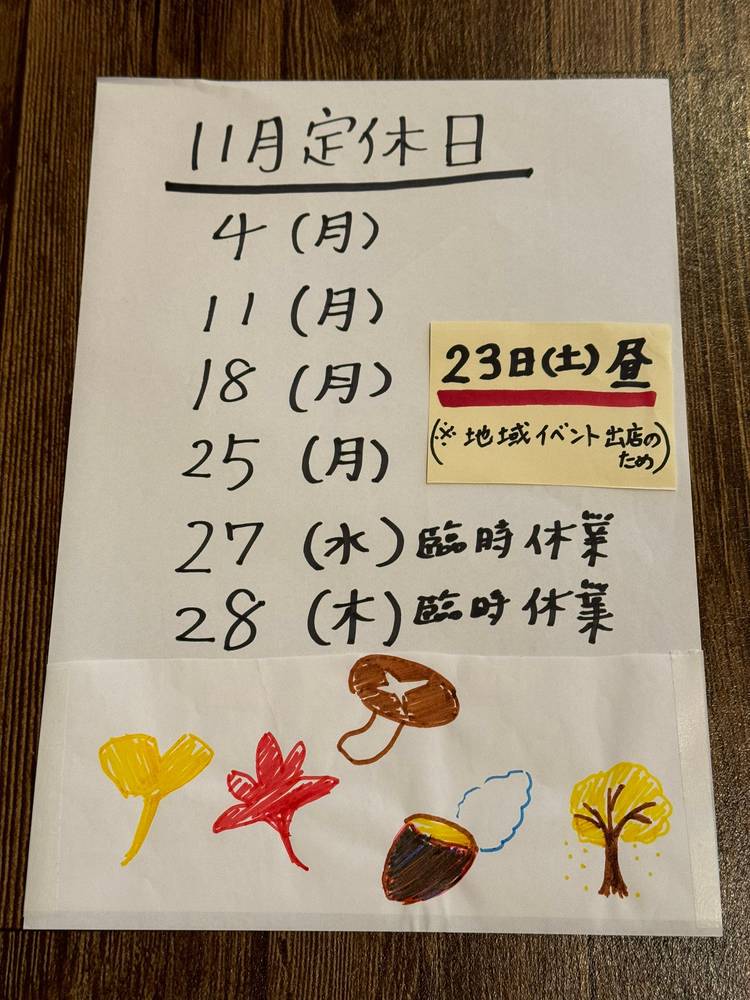 11月定休日
4(月)
11(月)
18(月)
25(月)
23日(土)昼
(※地域イベント出店の
ため)
27(水)臨時休業
28(木)臨時休業